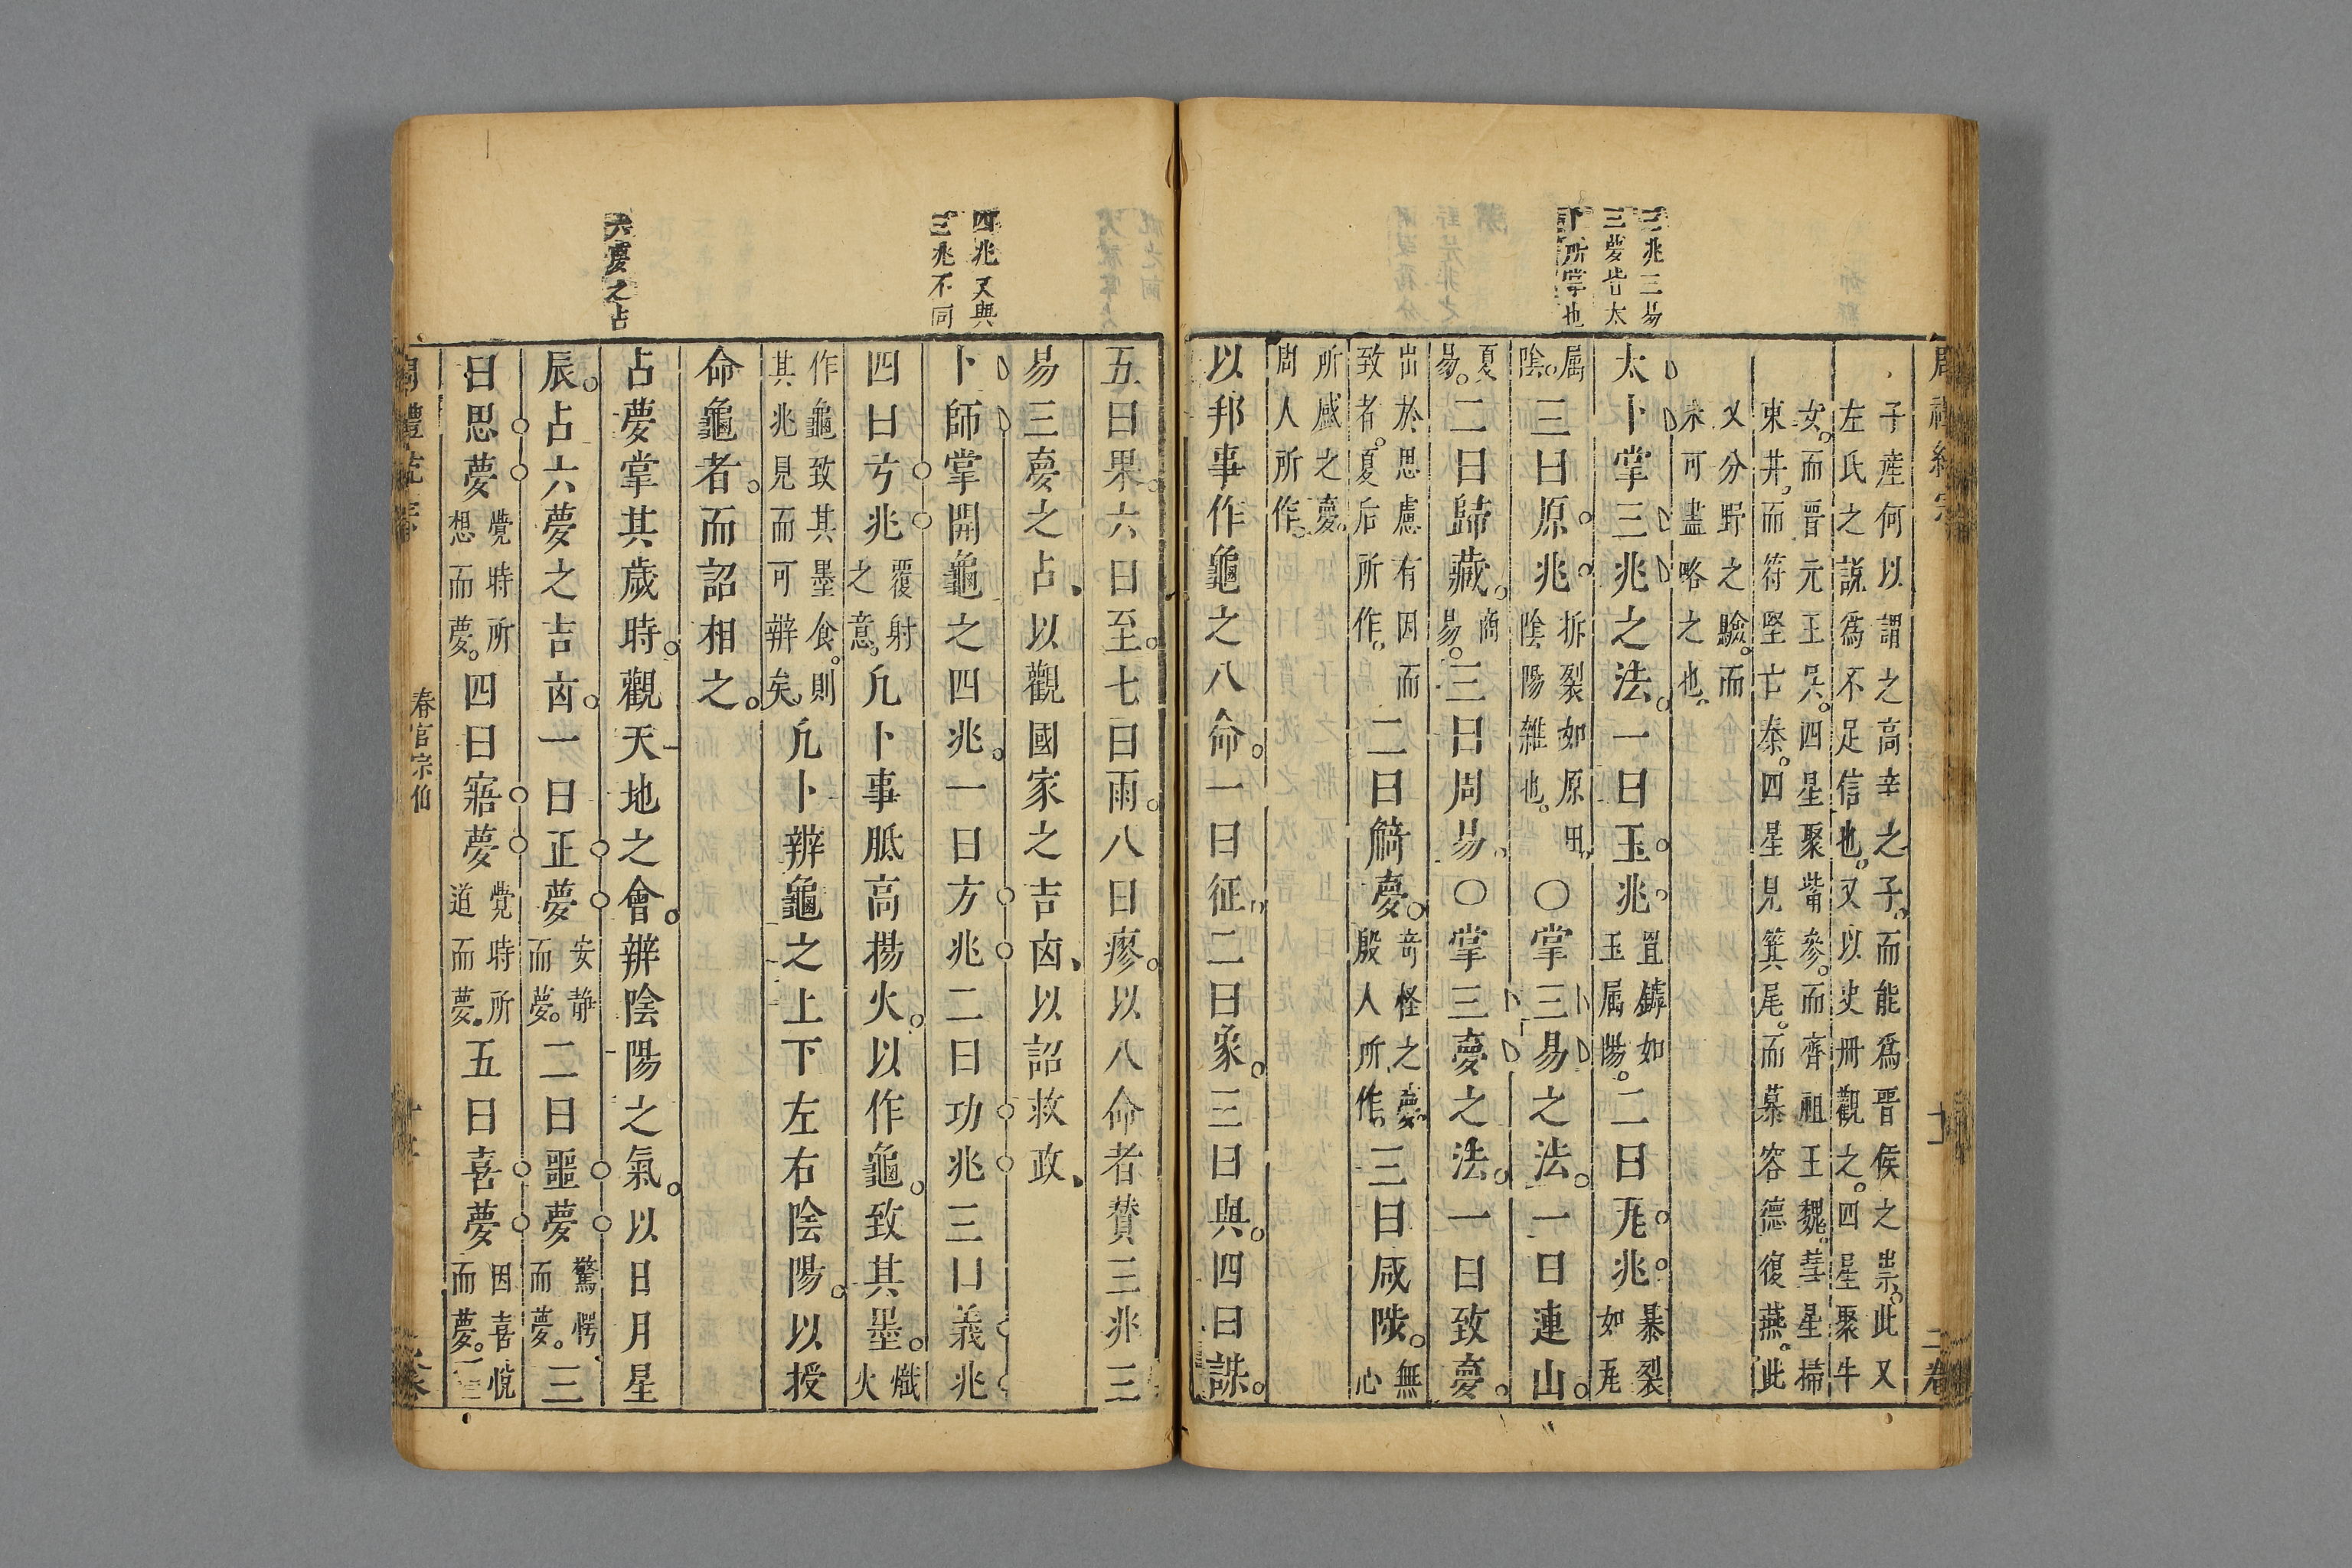 三兆三易
三夢皆太
卜所掌也
子産何以謂之高辛之子而能爲晋侯之祟此又
左氏之誣爲不足信也又以史冊觀之四星聚牛
女而晋元王吳四星聚觜參而齊祖王魏彗星掃
東井而苻堅亡秦四星見箕尾而慕容德復燕此
又分野之驗而
未可盡略之也
太卜掌三兆之法一曰玉兆二曰瓦兆
罝罅如
玉属陽
暴裂
如瓦
属
陰
三曰原兆
拆裂如原田
陰陽雜也
○掌三易之法一曰連山
夏
易
二曰歸藏
商
易
三曰周易○掌三夢之法一曰致夢
出於思慮有因而
致者夏后所作
二曰觭夢
奇怪之夢
殷人所作
三曰咸陟
無
心
所感之夢
周人所作
以邦事作龜之八命一曰征二曰象三曰與四曰謀
二卷
四兆又與
三兆不同
六夢之占
五曰果六曰至七曰雨八曰瘳以八命者贊三兆三
易三夢之占以觀國家之吉凶以詔救政
卜師掌開龜之四兆一曰方兆二曰功兆三曰義兆
四曰弓兆
覆射
之意
凡卜事眡高揚火以作龜致其墨
熾
火
作龜致其墨食則
其兆見而可辨矣
凡卜辨龜之上下左右陰陽以授
命龜者而詔相之
占夢掌其歲時觀天地之會辨陰陽之氣以日月星
辰占六夢之吉凶一曰正夢
安静
而夢
二曰噩夢
驚愕
而夢
三
曰思夢
覺時所
想而夢
四曰寤夢
覺時所
道而夢
五曰喜夢
因喜悅
而夢
春官宗伯